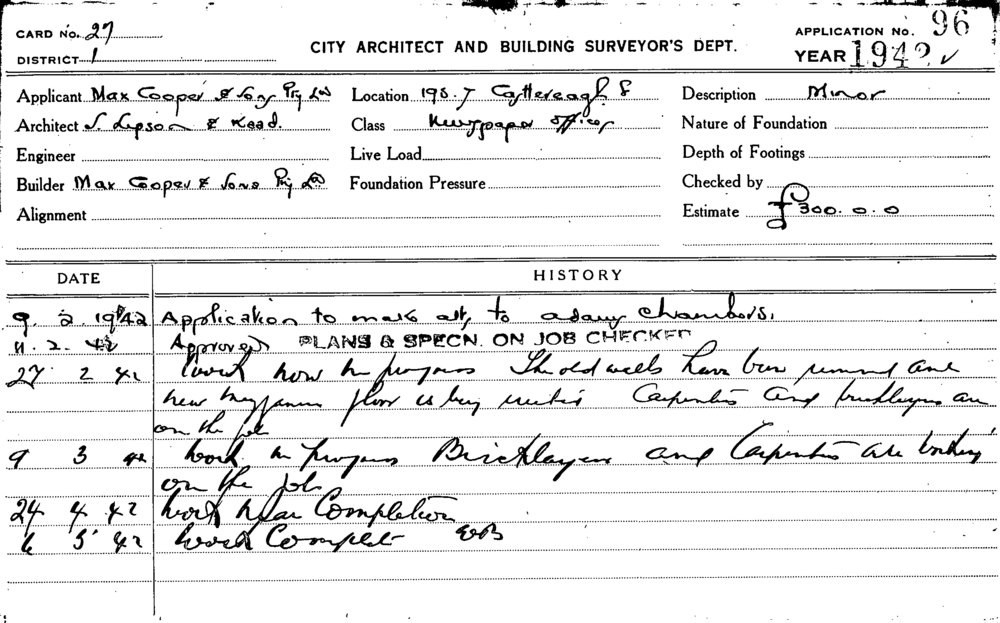 CARD No. 27
DISTRICT 1
CITY ARCHITECT AND BUILDING SURVEYOR'S DEPT.
APPLICATION No. 96
YEAR 1942 ✓
Applicant Max Cooper & Sons Pty Ltd Location 195.7 Castlereagh S Description Minor
Architect S. Lipson & Kaad. Class Newspaper offices Nature of Foundation
Engineer Live Load Depth of Footings
Builder Max Cooper & Sons Pty Ltd Foundation Pressure Checked by
Alignment Estimate £300.0.0
DATE HISTORY
9. 2. 1942 Application to make alt, to Adams Chambers.
11. 2. 42 Approved PLANS & SPECN. ON JOB CHECKED
27 2 42 Work now in progress The old walls have been removed and
new mezzanine floor is being erected Carpenters and bricklayers are
on the job
9 3 42 Work in progress Bricklayers and Carpenters are working
on the job
24 4 42 Work near Completion
6 5 42 Work Complete